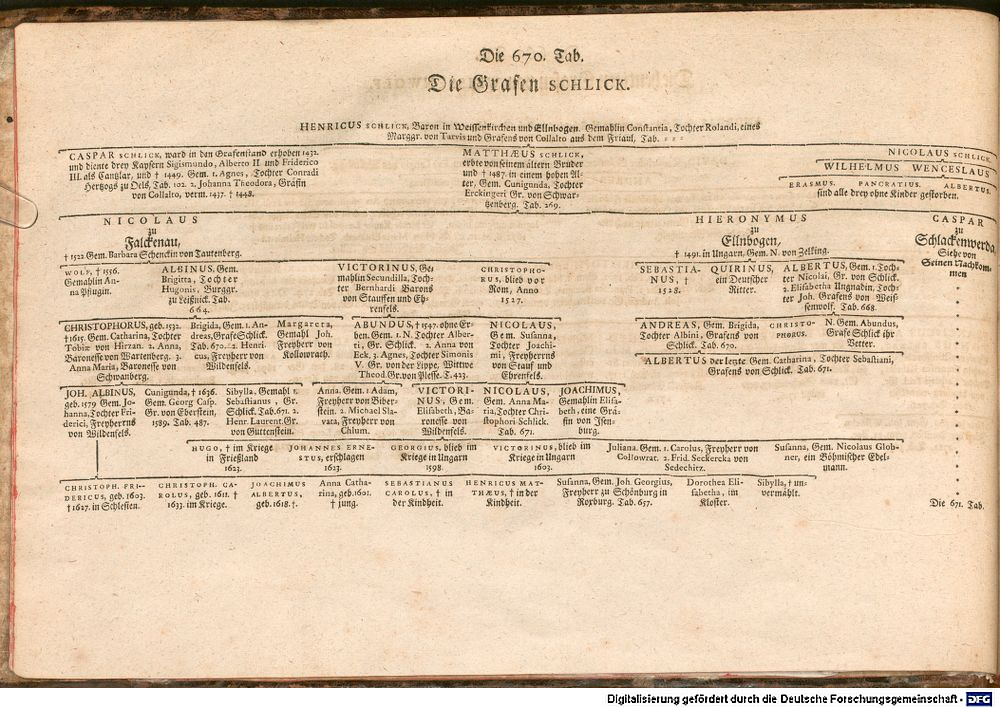 Die 670. Tab.
Die Grafen SCHLICK.
HENRICUS SCHLICK, Baron in Weissenkirchen und Ellnbogen. Gemahlin Constantia, Tochter Rolandi, eines
Marggr. von Tarvis und Grafens von Collalto aus dem Friaul, Tab. - - -
CASPAR SCHLICK, ward in den Grafenstand erhoben 1432.
und diente drey Kaysern Sigismundo, Alberto II. und Friderico
III. als Cantzlar, und † 1449. Gem. 1. Agnes, Tochter Conradi
Hertzogs zu Oels, Tab. 102. 2. Johanna Theodora, Gräfin
von Collalto, verm. 1437. † 1448.
MATTHÆUS SCHLICK,
erbte von seinem ältern Bruder
und † 1487. in einem hohen Al-
ter, Gem. Cunigunda, Tochter
Erckingeri Gr. von Schwar-
tzenberg. Tab. 269.
NICOLAUS SCHLICK.
WILHELMUS WENCESLAUS
ERASMUS. PANCRATIUS. ALBERTUS.
sind alle drey ohne Kinder gestorben.
NICOLAUS
zu
Falckenau,
† 1522 Gem. Barbara Schenckin von Tautenberg.
HIERONYMUS
zu
Ellnbogen,
† 1491. in Ungarn, Gem. N. von Zelking.
CASPAR
zu
Schlackenwerda,
Siehe von
Seinen Nachkom-
men
WOLF, † 1556.
Gemahlin An-
na Pflugin.
ALBINUS, Gem.
Brigitta, Tochter
Hugonis, Burggr.
zu Leißnick. Tab.
664.
VICTORINUS, Ge-
mahlin Secundilla, Toch-
ter Bernhardi Barons
von Stauffen und Eh-
renfels.
CHRISTOPHO-
RUS, blieb vor
Rom, Anno
1527.
SEBASTIA-
NUS, †
1528.
QUIRINUS,
ein Deutscher
Ritter.
ALBERTUS, Gem. 1. Toch-
ter Nicolai, Gr. von Schlick.
2. Elisabetha Ungnadin, Toch-
ter Joh. Grafens von Weis-
senwolf. Tab. 668.
CHRISTOPHORUS, geb. 1532.
† 1615. Gem. Catharina, Tochter
Tobiæ von Hirzan. 2. Anna,
Baronesse von Wartenberg. 3.
Anna Maria, Baronesse von
Schwanberg.
Brigida, Gem. 1. An-
dreas, Grafe Schlick.
Tab. 670. 2. Henri-
cus, Freyherr von
Wildenfels.
Margareta,
Gemahl Joh.
Freyherr von
Kollowrath.
ABUNDUS, † 1547. ohne Er-
ben. Gem. 1. N. Tochter Alber-
ti, Gr. Schlick. 2. Anna von
Eck. 3. Agnes, Tochter Simonis
V. Gr. von der Lippe, Wittwe
Theod. Gr. von Plesse. T. 423.
NICOLAUS,
Gem. Susanna,
Tochter Joachi-
mi, Freyherrns
von Stauf und
Ehrenfels.
ANDREAS, Gem. Brigida,
Tochter Albini, Grafens von
Schlick. Tab. 670.
CHRISTO-
PHORUS.
N. Gem. Abundus,
Grafe Schlick ihr
Vetter.
ALBERTUS der letzte Gem. Catharina, Tochter Sebastiani,
Grafens von Schlick. Tab. 671.
JOH. ALBINUS,
geb. 1579 Gem. Jo-
hanna, Tochter Fri-
derici, Freyherrns
von Wildenfels.
Cunigunda, † 1636.
Gem. Georg Casp.
Gr. von Eberstein,
1589. Tab. 487.
Sibylla, Gemahl 1.
Sebastianus, Gr.
Schlick. Tab. 671. 2.
Henr. Laurent. Gr.
von Guttenstein.
Anna. Gem. 1 Adam,
Freyherr von Biber-
stein. 2. Michael Sla-
vata, Freyherr von
Chlum.
VICTORI-
NUS, Gem.
Elisabeth, Ba-
ronesse von
Wildenfels.
NICOLAUS,
Gem. Anna Ma-
ria, Tochter Chri-
stophori Schlick.
Tab. 671.
JOACHIMUS,
Gemahlin Elisa-
beth, eine Grä-
fin von Isen-
burg.
HUGO, † im Kriege
in Frießland
1623.
JOHANNES ERNE-
STUS, erschlagen
1633.
GEORGIUS, blieb im
Kriege in Ungarn
1598.
VICTORINUS, blieb im
Kriege in Ungarn
1603.
Juliana. Gem. 1. Carolus, Freyherr von
Collowrat. 2. Frid. Seckercka von
Sedechitz.
Susanna, Gem. Nicolaus Glob-
ner, ein Böhmischer Edel-
mann.
CHRISTOPH. FRI-
DERICUS, geb. 1603.
† 1627. in Schlesien.
CHRISTOPH. CA-
ROLUS, geb. 1611. †
1633. im Kriege.
JOACHIMUS
ALBERTUS,
geb. 1618. †.
Anna Catha-
rina, geb. 1601.
† jung.
SEBASTIANUS
CAROLUS, † in
der Kindheit.
HENRICUS MAT-
THÆUS, † in der
Kindheit.
Susanna, Gem. Joh. Georgius,
Freyherr zu Schönburg in
Roxburg. Tab. 657.
Dorothea Eli-
sabetha, im
Kloster.
Sibylla, † un-
vermählt.
Die 671. Tab.
Digitalisierung gefördert durch die Deutsche Forschungsgemeinschaft - DFG